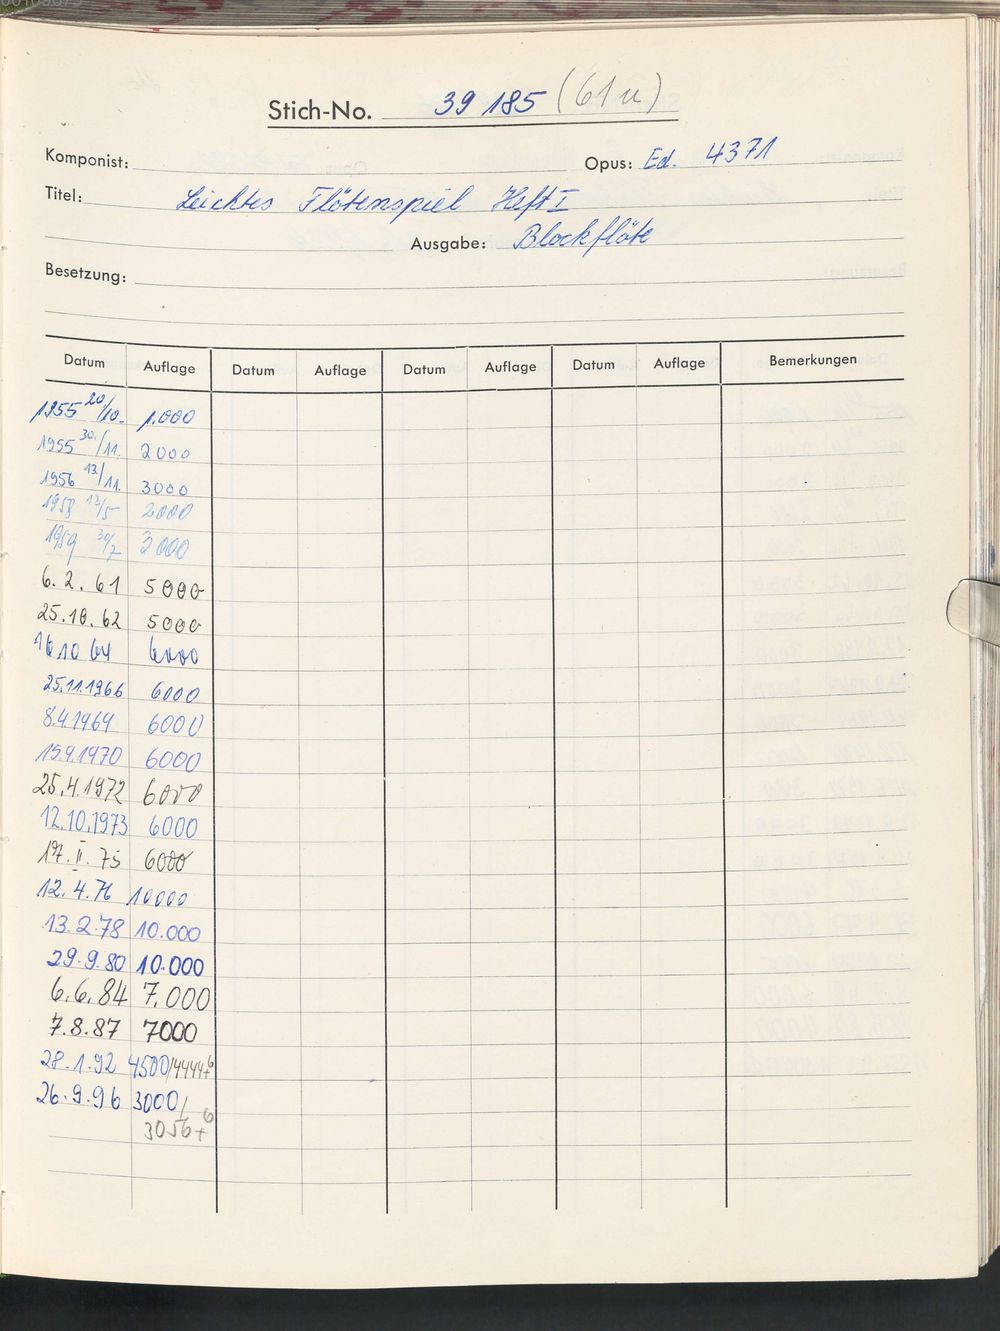 Stich-No. 39 185 (61 u)
Komponist: Opus: Ed. 4371
Titel: Leichtes Flötenspiel Heft I
Ausgabe: Blockflöte
Besetzung:
Datum Auflage Datum Auflage Datum Auflage Datum Auflage Bemerkungen
1955 20/10. 1.000
1955 30./11. 2000
1956 13./11. 3000
1958 13/5 2000
1959 30/7 3000
6. 2. 61 5000
25.10.62 5000
10 64 6000
25.11.1966 6000
8.4.1969 6000
15.9.1970 6000
25.4.1972 6000
12.10.1973 6000
17. II. 75 6000
12. 4. 76 10000
13. 2. 78 10.000
29. 9. 80 10.000
6. 6. 84 7.000
7. 8. 87 7000
28. 1. 92 4500/4444+6
26. 9. 96 3000/
3056+6